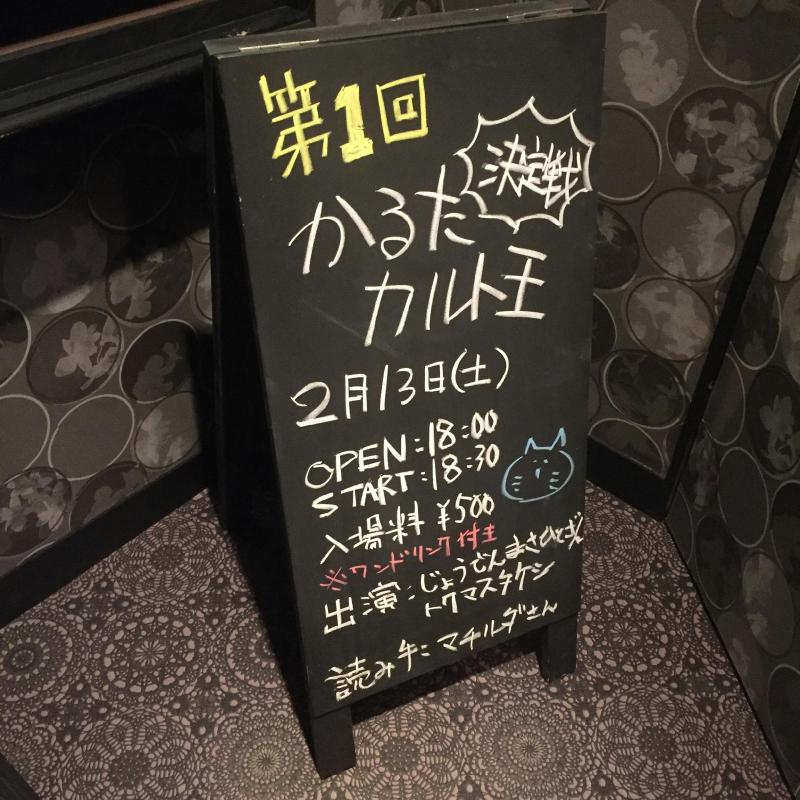 第1回
かるた
カルト王
決定戦
2月13日(土)
OPEN:18:00
START:18:30
入場料 ¥500
※ワンドリンク付き
出演:じょうどんまさひとさん
トクマスタケシ
読み手:マチルダさん